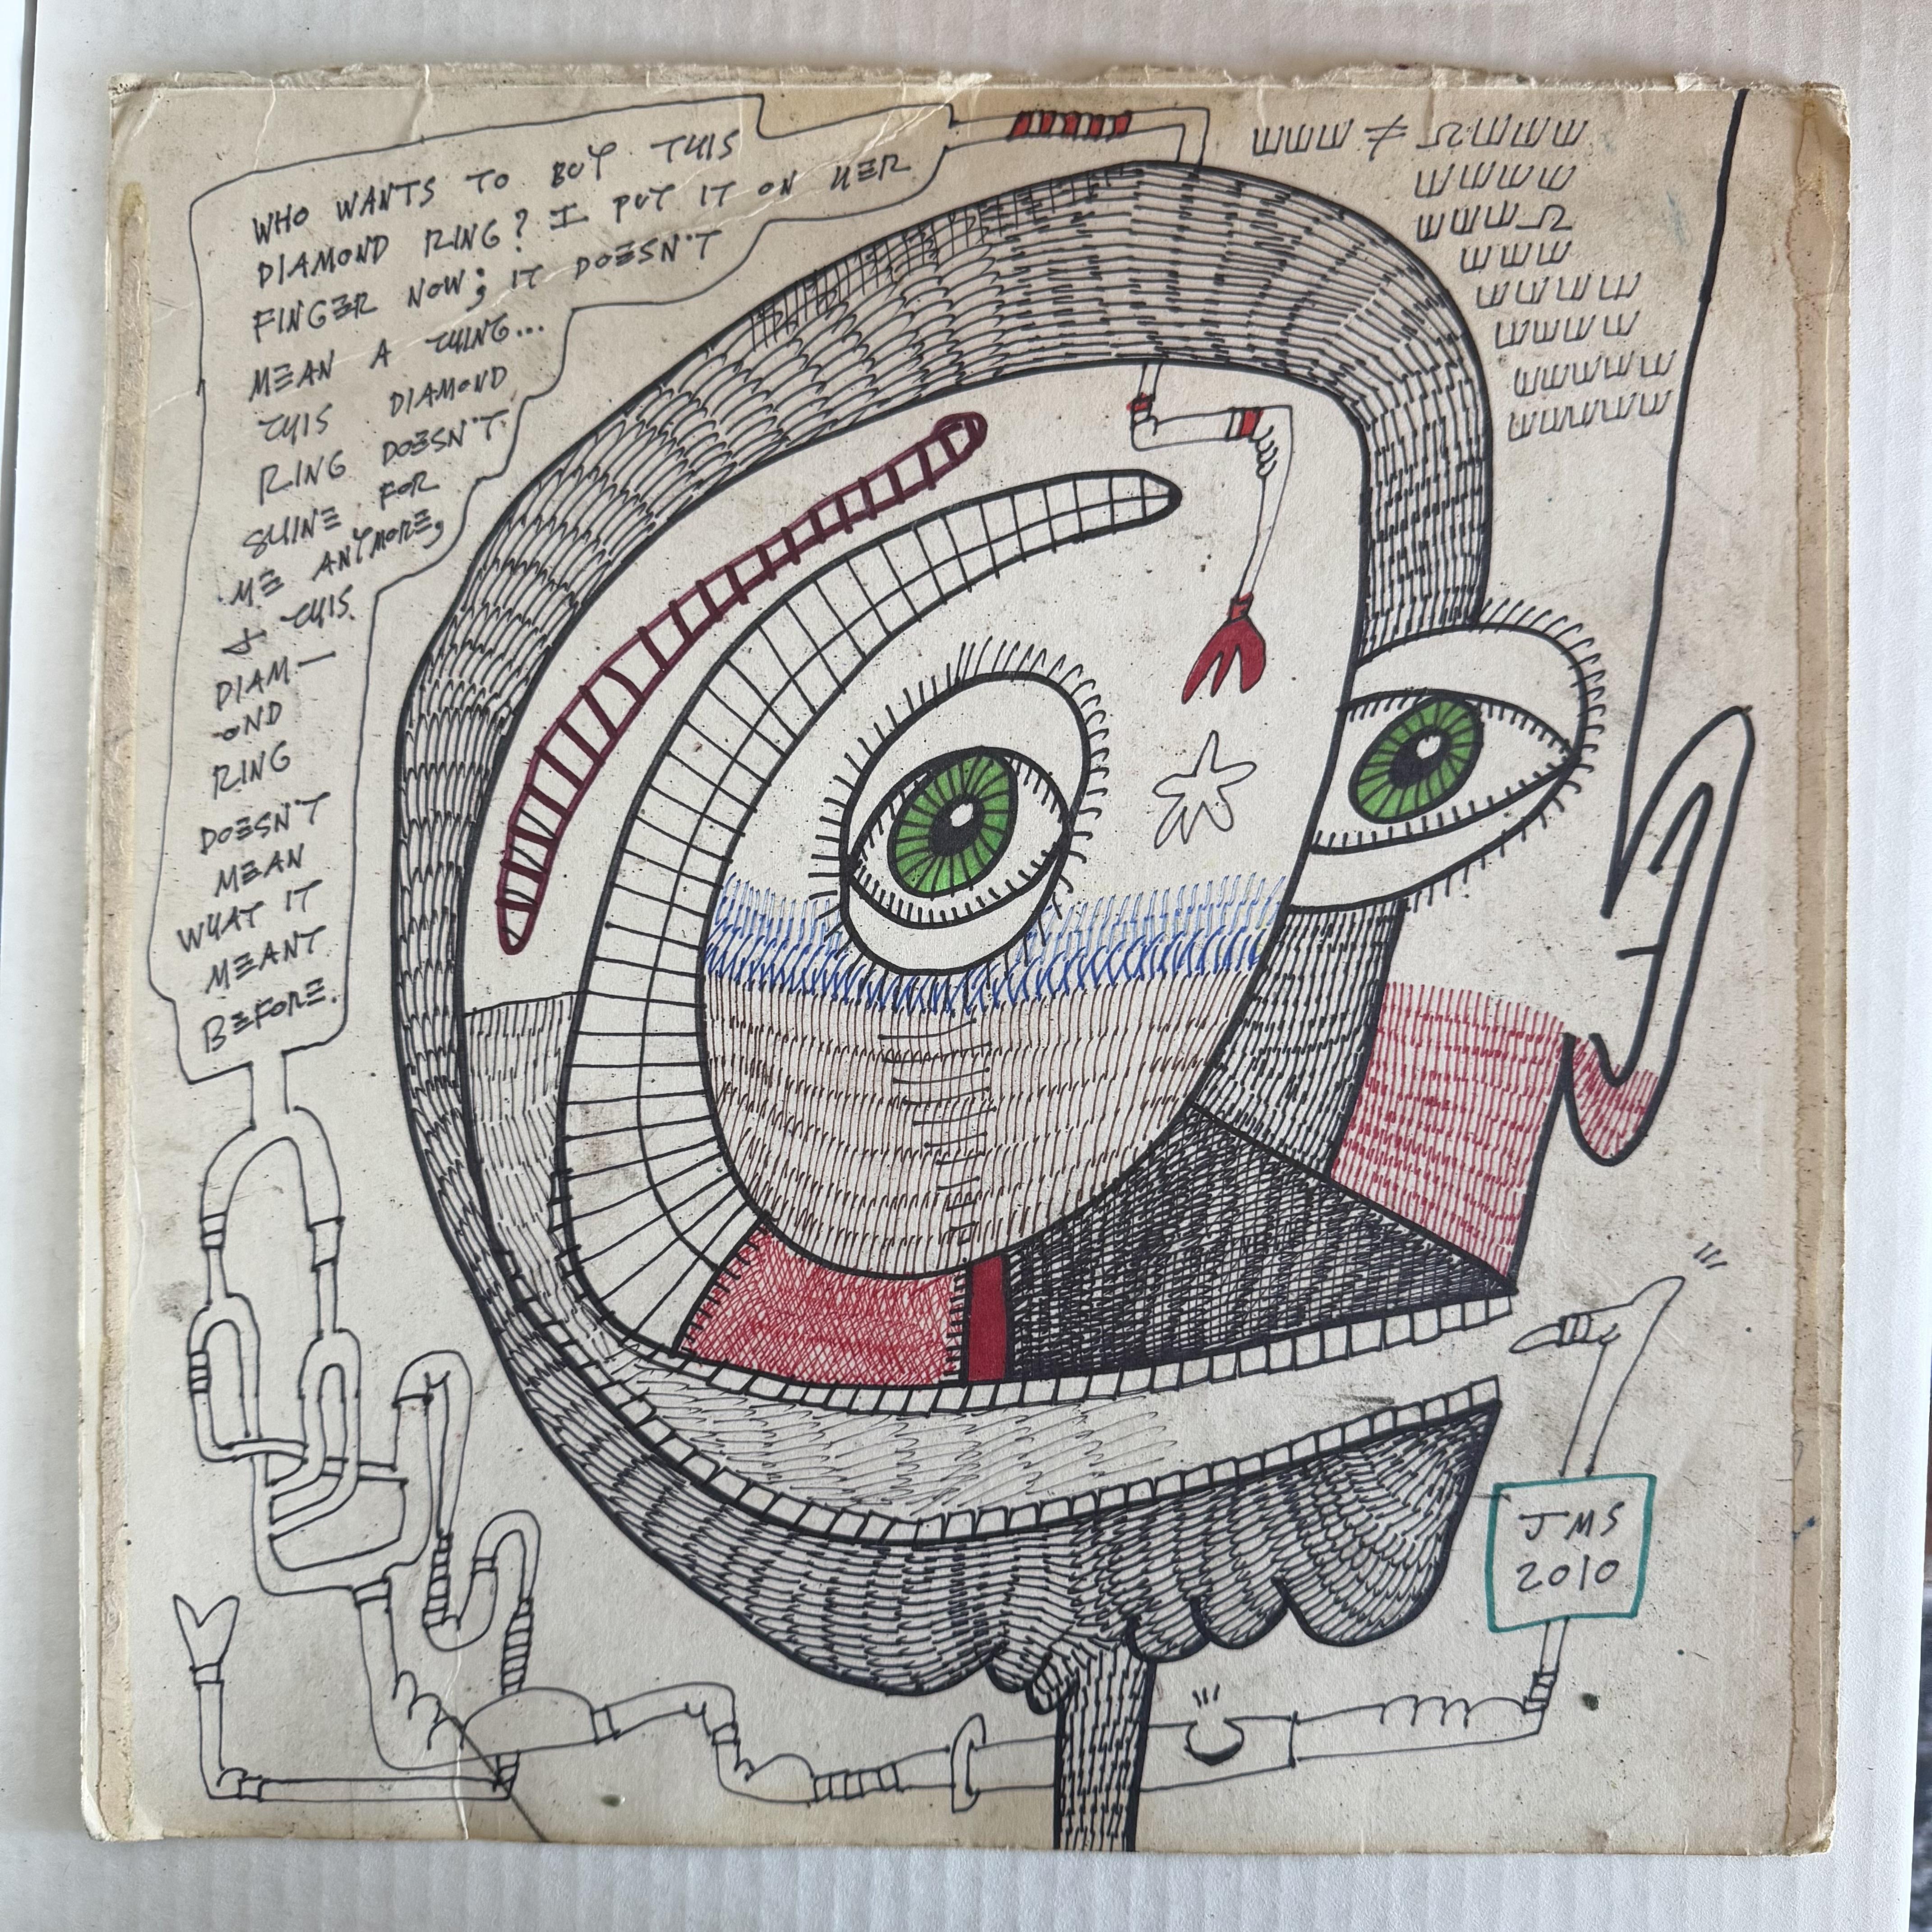 WHO WANTS TO BUY THIS
DIAMOND RING? I PUT IT ON HER
FINGER NOW; IT DOESN'T
MEAN A THING...
THIS DIAMOND
RING DOESN'T
SHINE FOR
ME ANYMORE,
& THIS
DIAM—
OND
RING
DOESN'T
MEAN
WHAT IT
MEANT
BEFORE.
JMS
2010